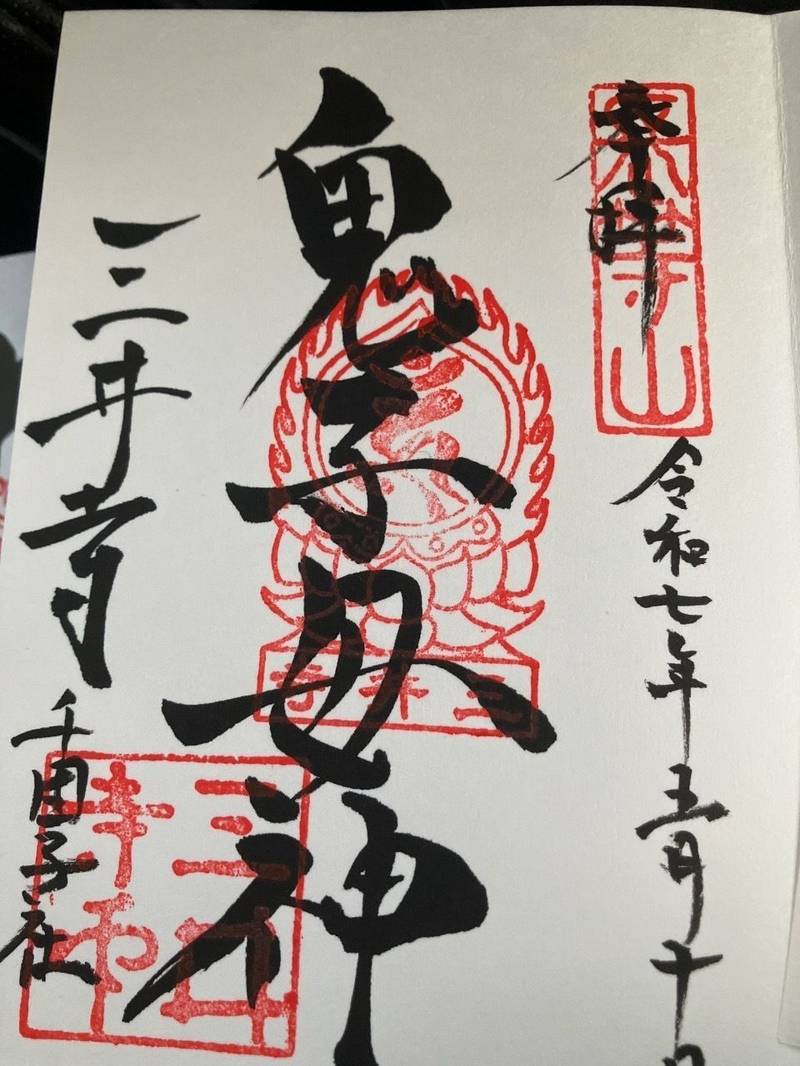 奉拝
長等山
令和七年五月十日
鬼子母神
三井寺
三井寺
千団子社
三井寺印